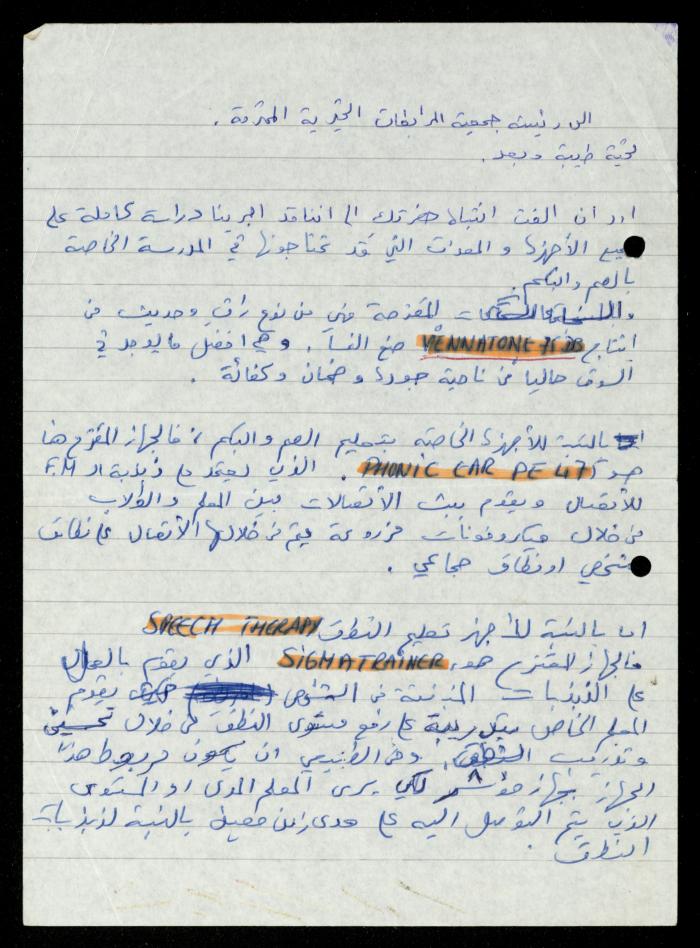 الى رئيسة جمعية المرابطات الخيرية المحترمة .
تحية طيبة وبعد .
اود ان الفت انتباه حضرتك الى اننا قد اجرينا دراسة كاملة على
جميع الأجهزة و المعدات التي قد تحتاجونها في المدرسة الخاصة
بالصم والبكم .
المقترحة فهي من نوع راقٍ وحديث من
انتاج VIENNATONE 75 DB صنع النمسا . وهي افضل ما يوجد في
السوق حاليا من ناحية جودة و ضمان وكفائة .
بالنسبة للأجهزة الخاصة بتعليم الصم والبكم ، فالجهاز المقترح هنا
هو PHONIC EAR PE 471 . الذي يعتمد على ذبذبة الـ F.M
للأتصال ويقوم ببث الأتصالات بين المعلم والطلاب
من خلال ميكروفونات مزروعة يتم من خلالها الأتصال على نطاق
شخصي او نطاق جماعي .
اما بالنسبة للأجهزة تعليم النطق SPEECH THERAPY
فالجهاز المقترح هو SIGMATRAINER الذي يقوم بالعمل
على الذبذبات المنبعثة من الشخص يقوم
المعلم الخاص بتدريبه على رفع مستوى النطق من خلال تحسين
وتدريب النطق . ومن الطبيعي ان يكون مربوط هذا
الجهاز بجهاز مؤشر لكي يرى المعلم المدى او المستوى
الذي يتم التوصل اليه على مدى زمن معين بالنسبة لذبذبات
النطق .